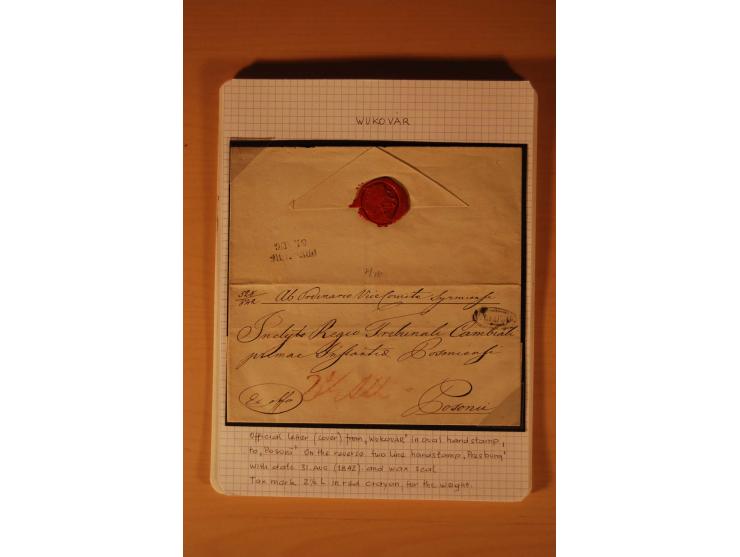 WUKOVÁR
528
Ab Ordinario Vice Comite Syrmiensi
Inclyto Regio Tribunali Cambiali
primae Instantiae Posoniensi
Ex offo
Posonii
Official letter (cover) from „WUKOVÁR" in oval handstamp,
to „Posoni" On the reverse two line handstamp „Presburg"
with date 31 AUG (1842) and wax seal
Tax mark 2½ L in red crayon, for the weight.